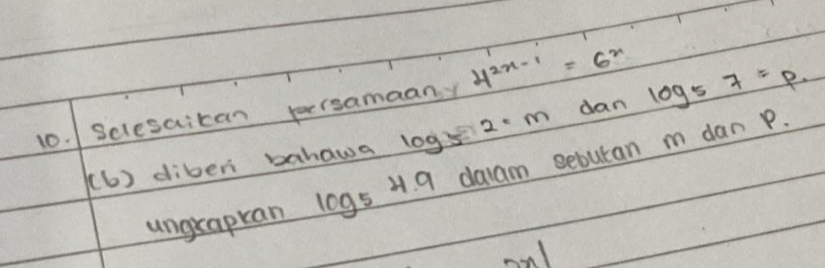 10. Selesaikan persamaan, 4^{2x-1} = 6^x
(b) diberi bahawa log_5 2 = m dan log_5 7 = p.
ungkapkan log_5 4.9 dalam sebutan m dan p.